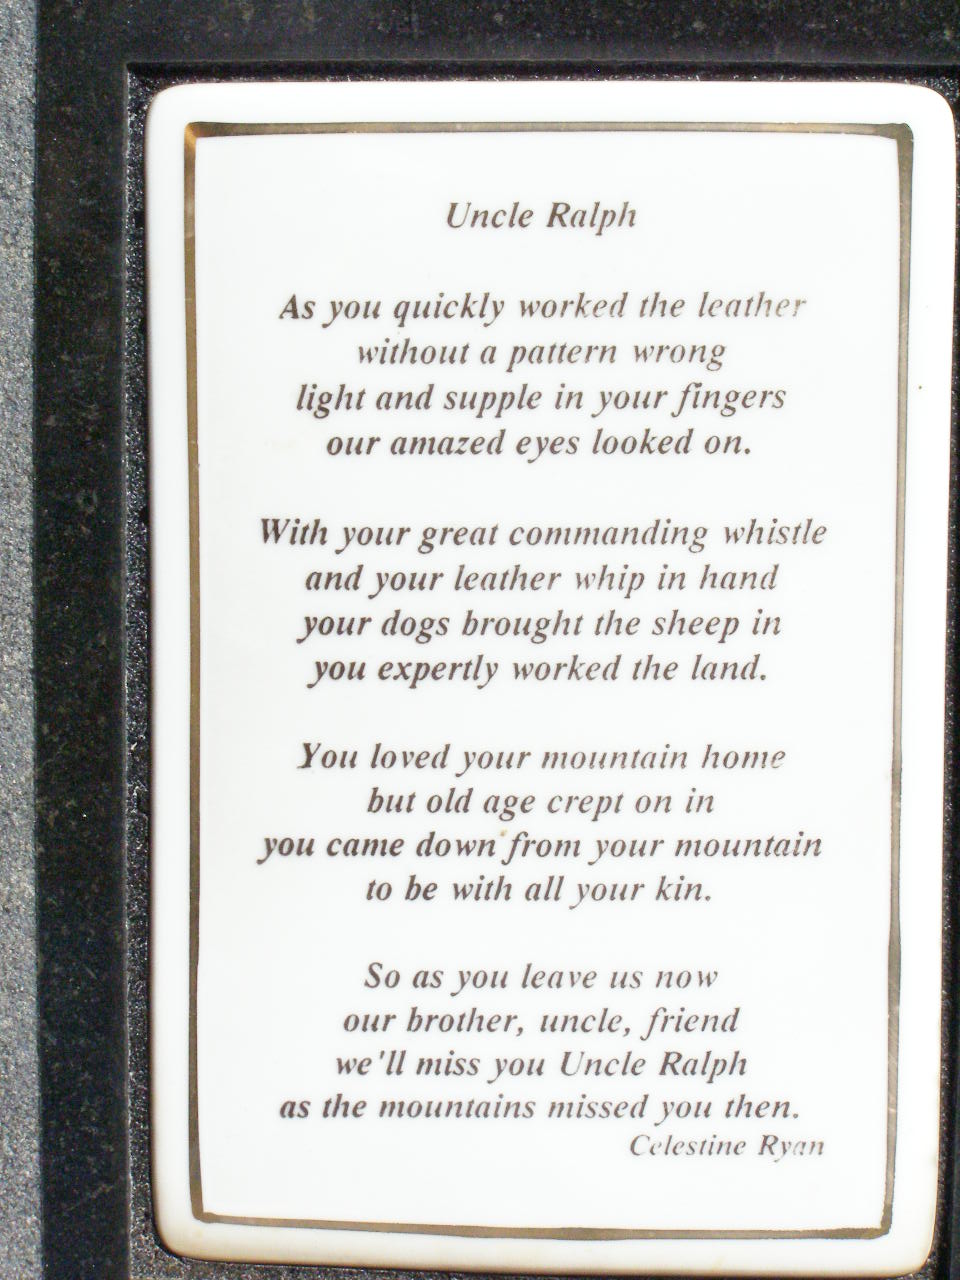 Uncle Ralph
As you quickly worked the leather
without a pattern wrong
light and supple in your fingers
our amazed eyes looked on.
With your great commanding whistle
and your leather whip in hand
your dogs brought the sheep in
you expertly worked the land.
You loved your mountain home
but old age crept on in
you came down from your mountain
to be with all your kin.
So as you leave us now
our brother, uncle, friend
we'll miss you Uncle Ralph
as the mountains missed you then.
Celestine Ryan